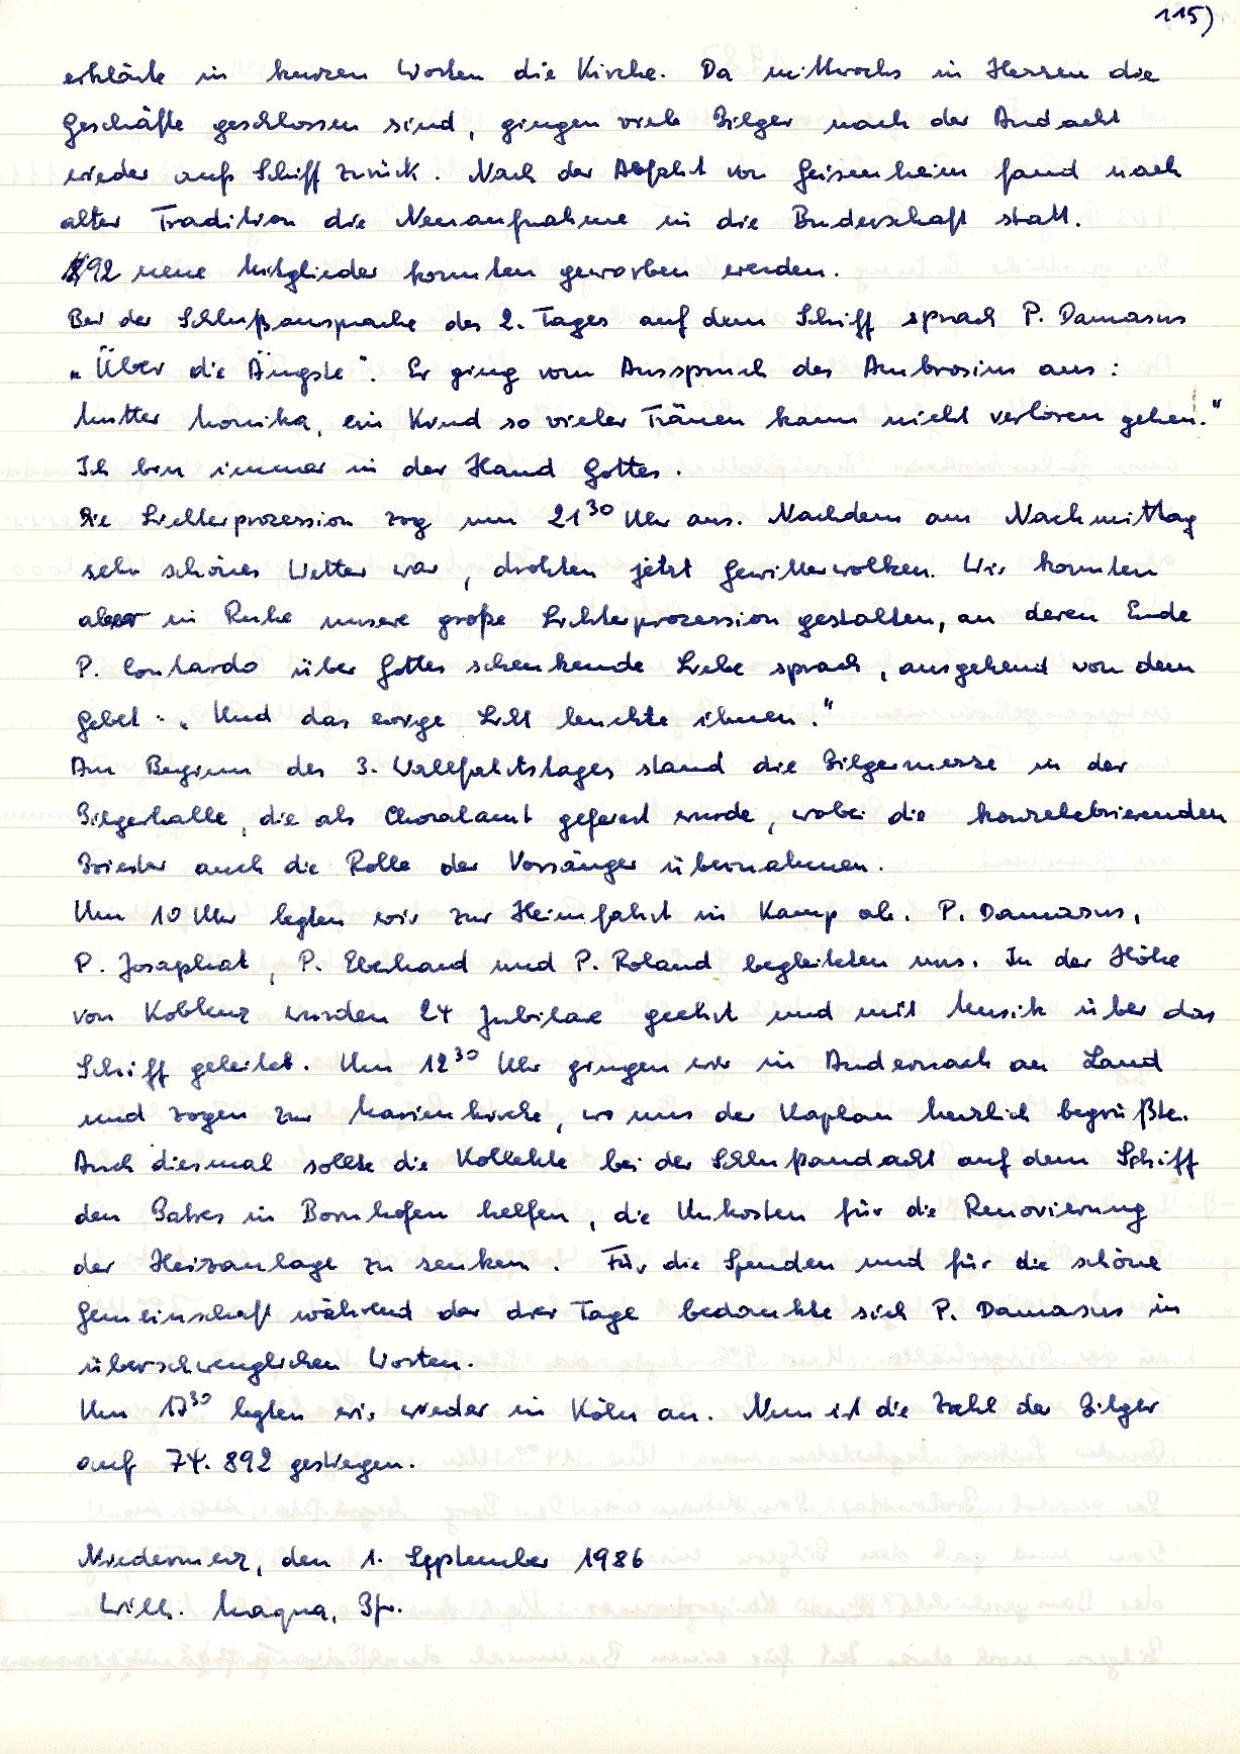 115)
erklärte in kurzen Worten die Kirche. Da mittwochs in Hessen die
Geschäfte geschlossen sind, gingen viele Pilger nach der Andacht
wieder aufs Schiff zurück. Nach der Abfahrt von Geisenheim fand nach
alter Tradition die Neuaufnahme in die Bruderschaft statt.
92 neue Mitglieder konnten geworben werden.
Bei der Schlußansprache des 2. Tages auf dem Schiff sprach P. Damasus
„Über die Ängste". Er ging vom Ausspruch des Ambrosius aus:
Mutter Monika, ein Kind so vieler Tränen kann nicht verloren gehen."
Ich bin immer in der Hand Gottes.
Die Lichterprozession zog um 21³⁰ Uhr aus. Nachdem am Nachmittag
sehr schönes Wetter war, drohten jetzt Gewitterwolken. Wir konnten
aber in Ruhe unsere große Lichterprozession gestalten, an deren Ende
P. Contardo über Gottes schenkende Liebe sprach, ausgehend von dem
Gebet: „Und das ewige Licht leuchte ihnen."
Am Beginn des 3. Wallfahrtstages stand die Pilgermesse in der
Pilgerhalle, die als Choralamt gefeiert wurde, wobei die konzelebrierenden
Priester auch die Rolle der Vorsänger übernahmen.
Um 10 Uhr legten wir zur Heimfahrt in Kamp ab. P. Damasus,
P. Josaphat, P. Eberhard und P. Roland begleiteten uns. In der Höhe
von Koblenz wurden 24 Jubilare geehrt und mit Musik über das
Schiff geleitet. Um 12³⁰ Uhr gingen wir in Andernach an Land
und zogen zur Marienkirche, wo uns der Kaplan herzlich begrüßte.
Auch diesmal sollte die Kollekte bei der Schlußandacht auf dem Schiff
den Patres in Bornhofen helfen, die Unkosten für die Renovierung
der Heizanlage zu senken. Für die Spenden und für die schöne
Gemeinschaft während der drei Tage bedankte sich P. Damasus in
überschwenglichen Worten.
Um 17³⁰ legten wir wieder in Köln an. Nun ist die Zahl der Pilger
auf 74.892 gestiegen.
Niedermerz, den 1. September 1986
Wilh. Maqua, Pfr.